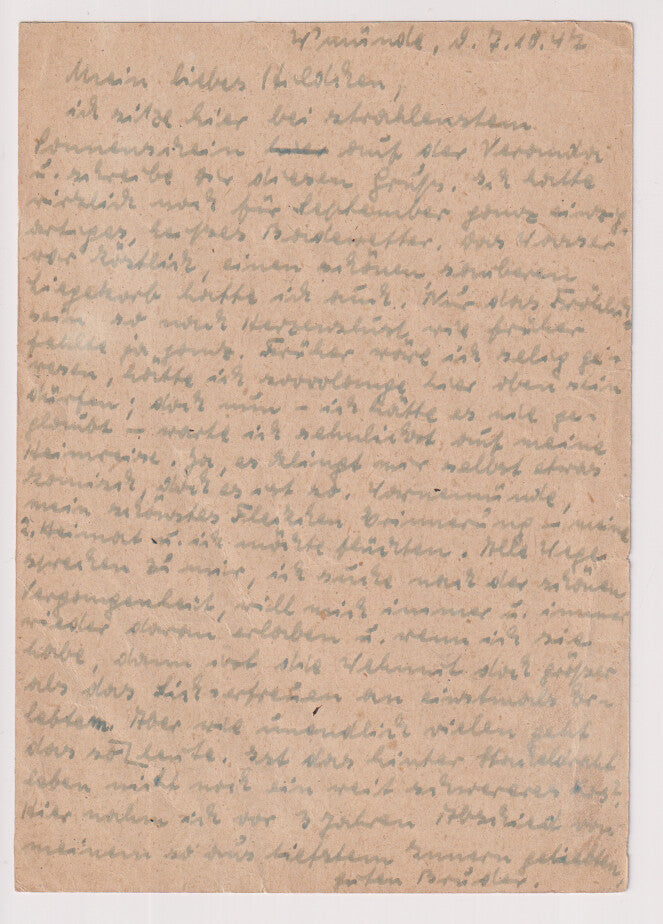 W'münde, d. 7.10.47
Mein liebes Hildchen,
ich sitze hier bei strahlenstem
Sonnenschein hier auf der Veranda
u. schreibe dir diesen Gruß. Ich hatte
wirklich noch für September ganz einzig-
artiges, heißes Badewetter. Das Wasser
war köstlich, einen schönen sauberen
Liegekorb hatte ich auch. Nur das Fröhlich-
sein so nach Herzenslust wie früher
fehlte ja ganz. Früher wäre ich selig ge-
wesen, hätte ich sooolange hier oben sein
dürfen; doch nun – ich hätte es nie ge-
glaubt – warte ich sehnlichst auf meine
Heimreise. Ja, es klingt mir selbst etwas
komisch, doch es ist so. Warnemünde,
mein schönstes Fleckchen Erinnerung –, meine
2. Heimat u. ich möchte flüchten. Alle Wege
sprechen zu mir, ich suche nach der schönen
Vergangenheit, will mich immer u. immer
wieder daran erlaben u. wenn ich sie
habe, dann ist die Wehmut doch größer
als das Sichserfreuen an einstmals Er-
lebtem. Aber wie unendlich vielen geht
das so heute. Ist das hinter Stacheldraht
leben nicht noch ein weit schwereres Los?
Hier nahm ich vor 3 Jahren Abschied von
meinem so aus tiefstem Innern geliebten,
guten Bruder.